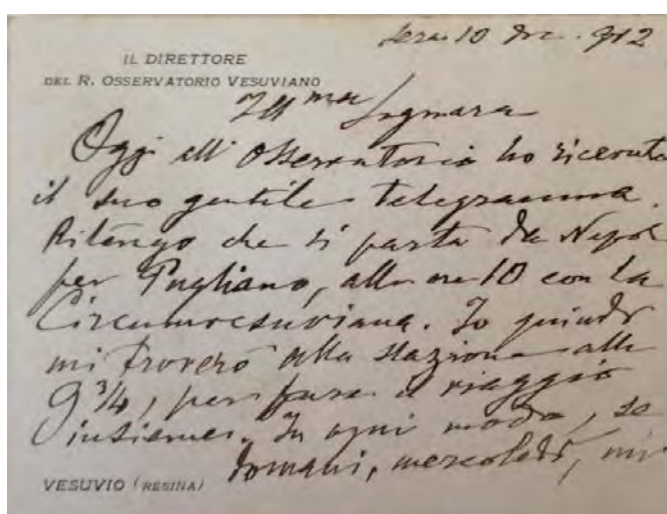 sera 10 Dic. 912
IL DIRETTORE
DEL R. OSSERVATORIO VESUVIANO
Ill ma Signora
Oggi all' Osservatorio ho ricevuto
il suo gentile telegramma.
Ritengo che si parta da Napoli
per Pugliano, alle ore 10 con la
Circumvesuviana. Io quindi
mi troverò alla stazione alle
9 3/4, per fare il viaggio
insieme. In ogni modo, se
domani, mercoledì, mi
VESUVIO (RESINA)